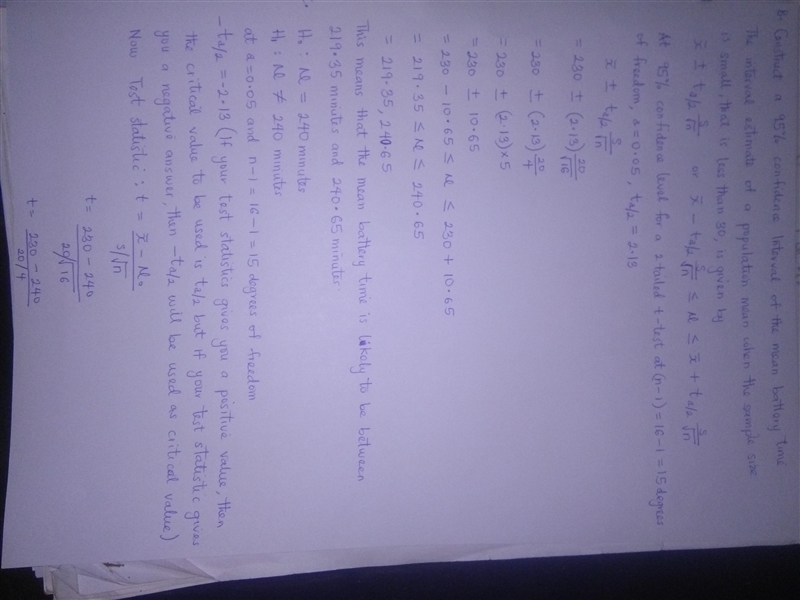 B. Construct a 95% confidence Interval of the mean battery time
The interval estimate of a population mean when the sample size
is small, that is less than 30, is given by
x̄ ± ta/2 s/√n or x̄ - ta/2 s/√n ≤ μ ≤ x̄ + ta/2 s/√n
At 95% confidence level for a 2 tailed t-test at (n-1) = 16-1 = 15 degrees
of freedom, a = 0.05, ta/2 = 2.13
x̄ ± ta/2 s/√n
= 230 ± (2.13) 20/√16
= 230 ± (2.13) 20/4
= 230 ± (2.13) × 5
= 230 ± 10.65
= 230 - 10.65 ≤ μ ≤ 230 + 10.65
= 219.35 ≤ μ ≤ 240.65
= 219.35, 240.65
This means that the mean battery time is likely to be between
219.35 minutes and 240.65 minutes.
H₀ : μ = 240 minutes
H₁ : μ ≠ 240 minutes
at a = 0.05 and n-1 = 16-1 = 15 degrees of freedom
-ta/2 = -2.13 (if your test statistics gives you a positive value, then
the critical value to be used is ta/2 but if your test statistic gives
you a negative answer, then -ta/2 will be used as critical value)
Now Test statistic : t = x̄ - μ₀ / s/√n
t = 230 - 240 / 20/√16
t = 230 - 240 / 20/4